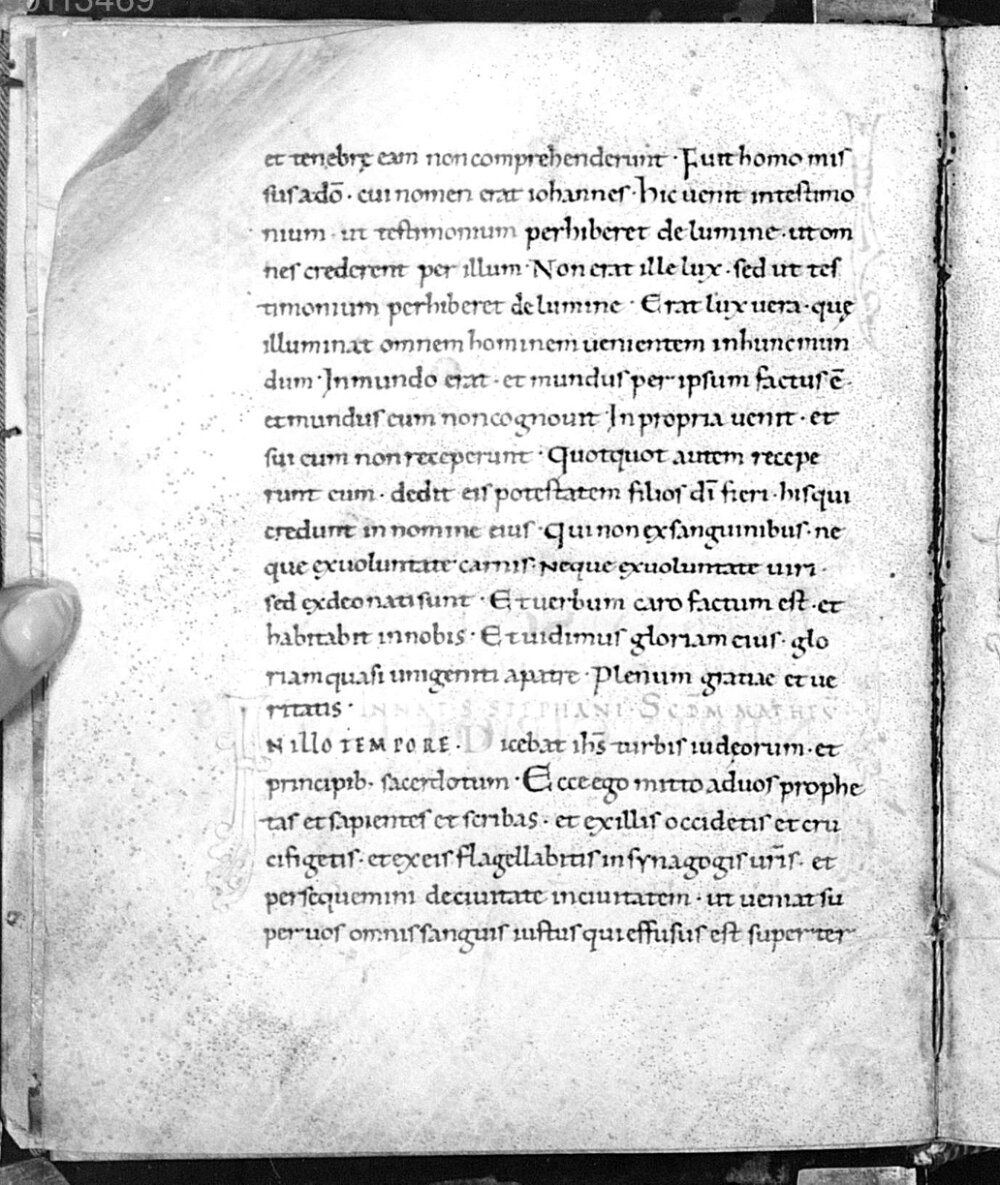 0113469
et tenebrę eam non comprehenderunt · Fuit homo mis
sus a dō · cui nomen erat iohannes · hic uenit in testimo
nium · ut testimonium perhiberet de lumine · ut om
nes crederent per illum · Non erat ille lux · sed ut tes
timonium perhiberet de lumine · Erat lux uera · quę
illuminat omnem hominem uenientem in hunc mun
dum · In mundo erat · et mundus per ipsum factus ē ·
et mundus eum non cognouit · In propria uenit · et
sui eum non receperunt · Quotquot autem recepe
runt eum · dedit eis potestatem filios dī fieri · his qui
credunt in nomine eius · Qui non ex sanguinibus · ne
que ex uoluntate carnis · neque ex uoluntate uiri ·
sed ex deo nati sunt · Et uerbum caro factum est · et
habitabit in nobis · Et uidimus gloriam eius · glo
riam quasi unigeniti a patre · Plenum gratiae et ue
ritatis · IN NAT S STEPHANI · SCDM MATHEV
IN illo TEMPORE · Dicebat ihs̄ turbis iudeorum · et
principib· sacerdotum · Ecce ego mitto ad uos prophe
tas et sapientes et scribas · et ex illis occidetis et cru
cifigetis · et ex eis flagellabitis in synagogis ur̄is · et
persequemini de ciuitate in ciuitatem · ut ueniat su
per uos omnis sanguis iustus qui effusus est super ter